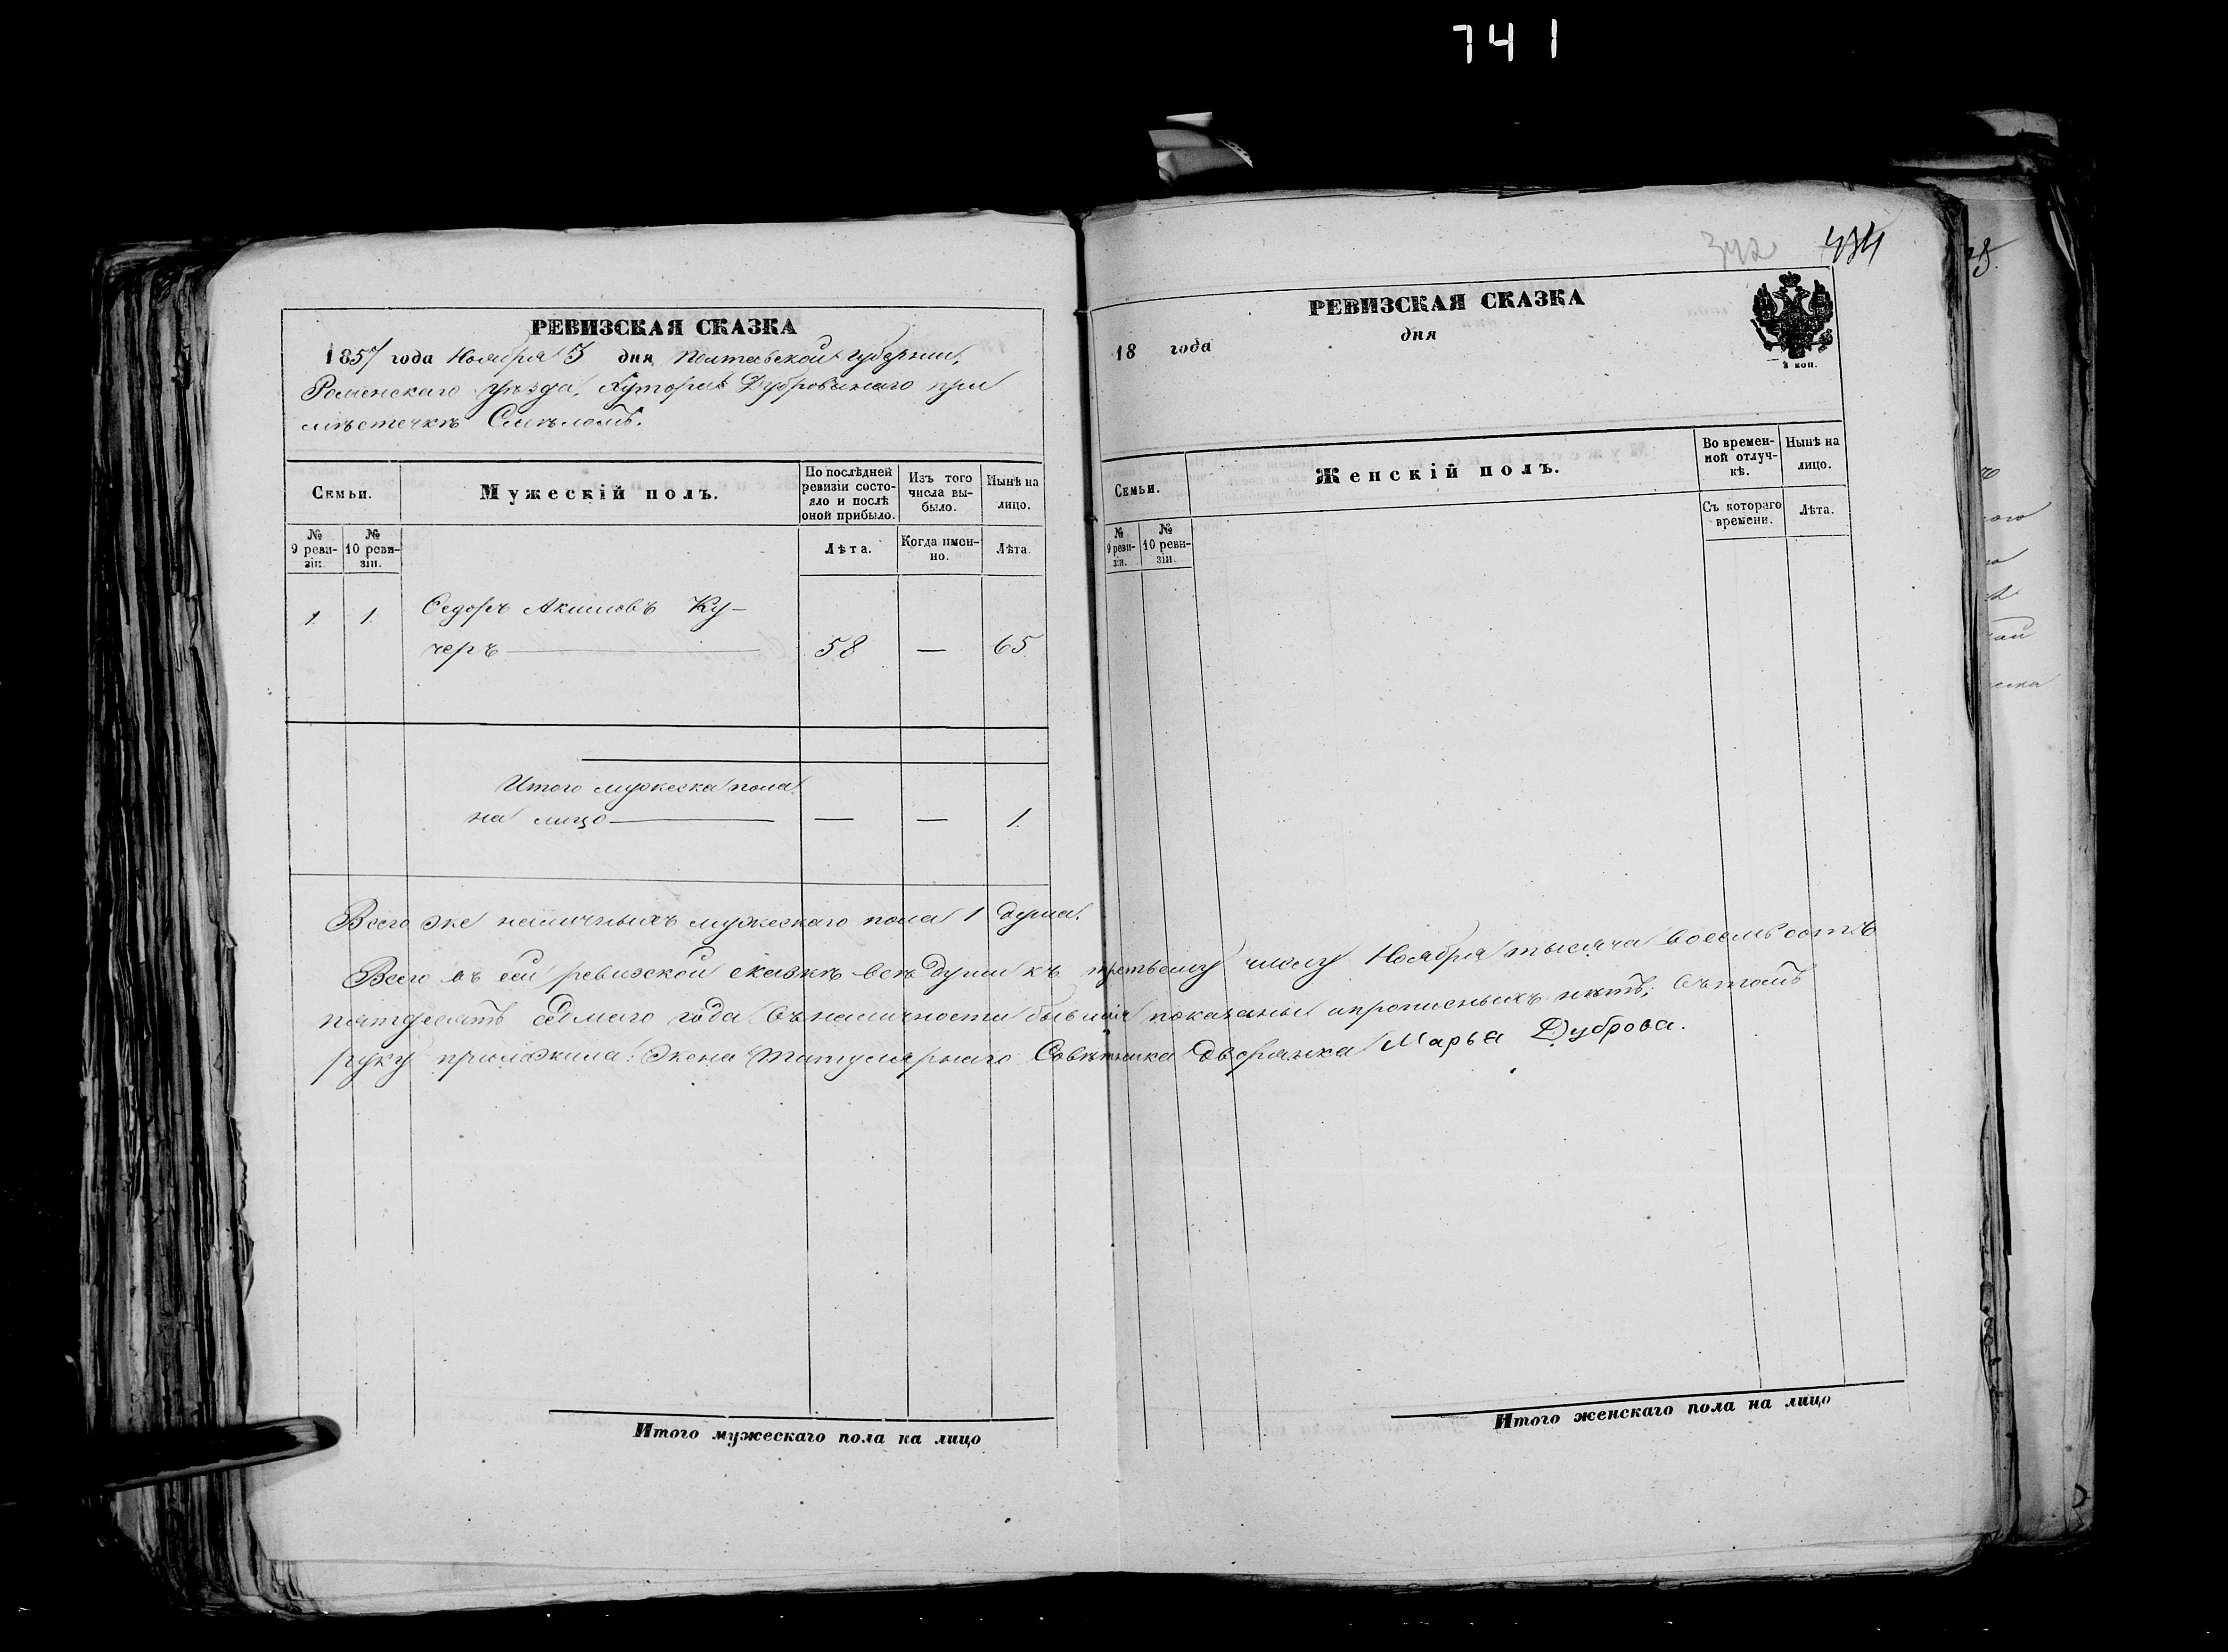 741
342 434
РЕВИЗСКАЯ СКАЗКА
1857 года Ноября 3 дня Полтавской губернии,
Роменскаго уѣзда, Хутора Дубровинаго при
мѣстечкѣ Смѣломъ.
Семьи.
Мужескій полъ.
По послѣдней ревизіи состояло и послѣ оной прибыло.
Изъ того числа выбыло.
Нынѣ на лицо.
№ 9 ревизіи.
№ 10 ревизіи.
Лѣта.
Когда именно.
Лѣта.
1. 1. Ѳедоръ Акимовъ Ку-
черъ — 58 — 65
Итого мужеска пола
на лицо — — — 1.
Всего же наличныхъ мужескаго пола 1 душа.
Всего въ сей ревизской сказкѣ всѣ души къ третьему числу Ноября тысяча восемьсотъ
пятдесятъ седмаго года въ наличности бывшія показаны и прописныхъ нѣтъ; въ томъ
руку приложила: Жена Титулярнаго Совѣтника дворянка Марья Дуброва.
Итого мужескаго пола на лицо
РЕВИЗСКАЯ СКАЗКА
18 года дня
2 коп.
Семьи.
Женскій полъ.
Во временной отлучкѣ.
Нынѣ на лицо.
№ 9 ревизіи.
№ 10 ревизіи.
Съ котораго времени.
Лѣта.
Итого женскаго пола на лицо